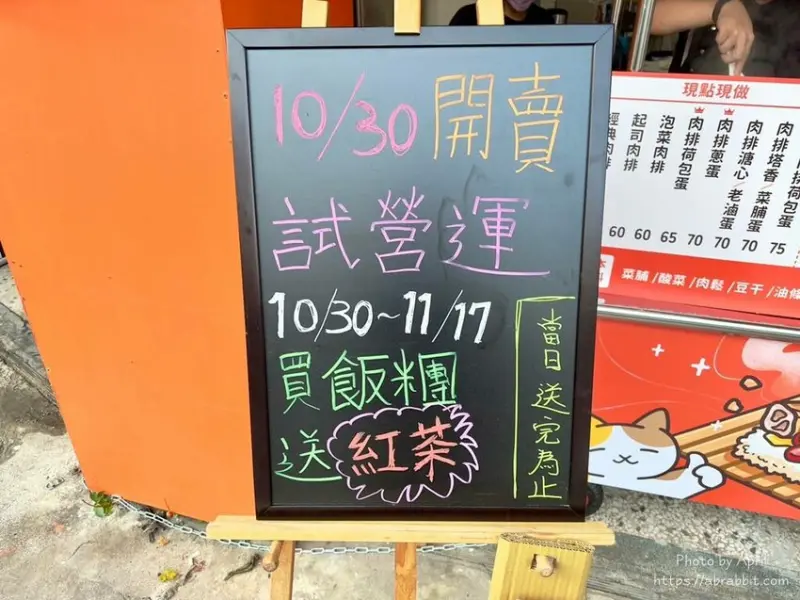 10/30 開賣
試營運
10/30~11/17
買飯糰
送 紅茶
當日送完為止
現點現做
起司肉排
泡菜肉排
肉排荷包蛋
肉排蔥蛋
肉排溏心/老滷蛋
肉排塔香/菜脯蛋
60 60 65 70 70 70 75
菜脯/酸菜/肉鬆/豆干/油條
Photo by April
https://abrabbit.com